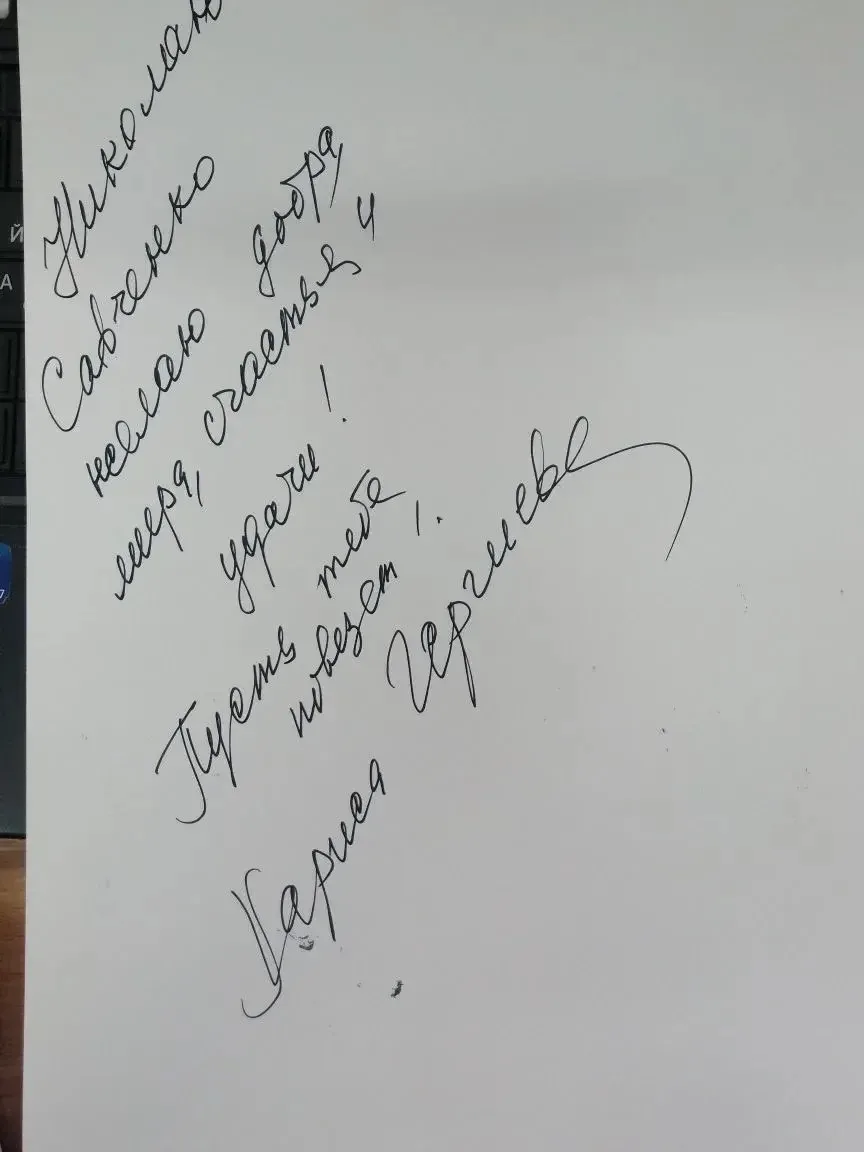 Николаю
Савченко
желаю добра,
мира, счастья и
удачи!
Пусть тебе
повезет!
Лариса Гергиева
Й
А